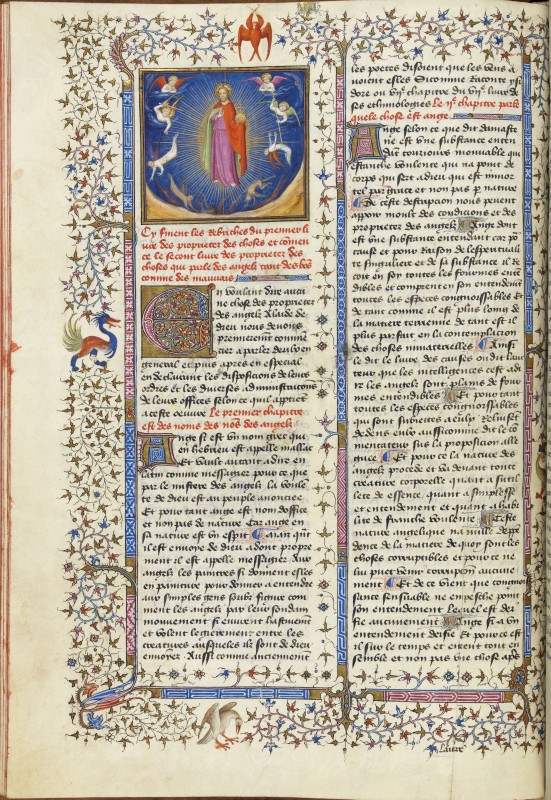 Cy finent les rebriches du premier li
ure des proprietez des choses et comen
ce le second liure des proprietez des
choses qui parle des angelz tant des bōs
comme des mauuais
En voulant dire aucu
ne chose des proprietez
des angelz A laude de
dieu nous deuons
premierement comme
cier a parler deulx en
general et puis apres en especial
en declairant les disposicions de leurs
ordres et les diuerses administracions
de leurs offices selon ce quil appartiēt
a ceste oeuure Le premier chapitre
est des noms des
Ange si est vn nom grec qui
en hebrieu est appelle mallat
Et vault autant a dire en
latin comme messagier pour ce que
par le mistere des angelz la voulē
te de dieu est au peuple anonciee
Et pour tant ange est nom doffice
et non pas de nature Car ange en
sa nature est vn esprit Mais quāt
il est enuoye de dieu adont propre
ment il est appelle messagier Aux
angelz les paintres si donnent elles
en painture pour donner a entendre
aux simples gens soubz figure com
ment les angelz par leur soudain
mouuement si euurent hastiuement
et volent legierement entre les
creatures ausquelz ilz sont de dieu
enuoyez Aussi comme anciennement
les poetes disoient que les vens a
uoient elles Si comme raconte ysi
dore ou chapitre du liure de
ses ethimologies Le ij.e chapitre parle
quele chose est ange
Ange selon ce que dit damasce
ne est vne substance enten
dant tousiours mouuable qui
est franche voulente qui na point de
corps qui sert a dieu qui est immor
tel par grace et non pas par nature
De ceste descripcion nous peuent
apparoir moult des condicions et des
proprietez des angelz Ange dont
est vne substance entendant car pour
cause et pour raison de lesperituali
te singuliere et de sa substance il re
coit en soy toutes les fourmes enten
dibles et comprent en son entendement
toutes les especes congnoissables Et
de tant comme il est plus loing de
la matiere terrienne de tant est il
plus parfait en la contemplacion
des choses inmaterielles Ainsi
le dit le liure des causes ou dit lau
teur que les intelligences cest a di
re les angelz sont plains de four
mes entendibles Et pour tant
toutes les especes congnoissables
qui sont subiectes a celuy Reluisent
dedens eulx aussi comme dit le co
mentateur sus la proposicion alle
guee Et pour ce la nature des
angelz procede et va deuant toute
creature corporelle quant a subti
lete de essence. quant a simplesse
et entendement et quant a habi
lite de franche voulente Ceste
nature angelique na nulle depen
dence de la matiere de quoy sont les
choses corruptibles et pour ce ne
luy puet venir corrupcion aucune
ment Et de ce vient que congnois
sance sensitiue ne empesche point
son entendement lequel est dei
fie aucunement Ange si a vn
entendement deifie Et pour ce est
il sur le temps et entent tout en
semble et non pas vne chose apres